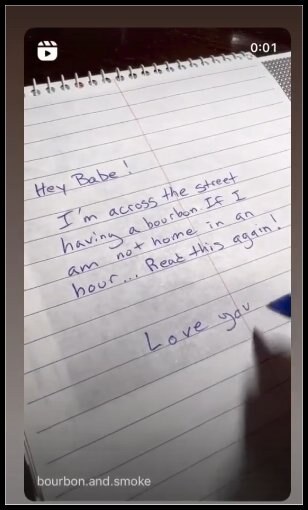 0:01
Hey Babe!
I'm across the street
having a bourbon If I
am not home in an
hour... Read this again!
Love you
bourbon.and.smoke